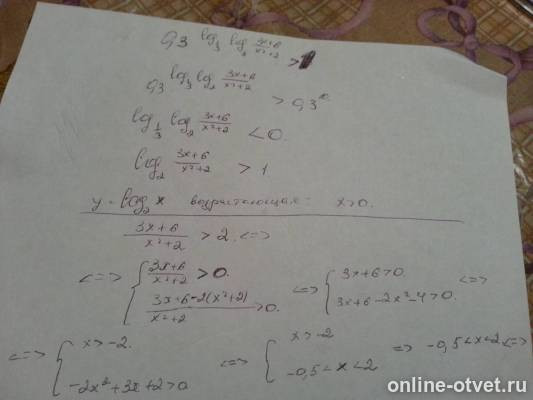 0,3^{log_{1/3} log_2 (3x+6)/(x²+2)} > 1
0,3^{log_{1/3} log_2 (3x+6)/(x²+2)} > 0,3^0.
log_{1/3} log_2 (3x+6)/(x²+2) < 0.
log_2 (3x+6)/(x²+2) > 1.
y = log_2 x возрастающая: x>0.
(3x+6)/(x²+2) > 2. <=>
<=> { (3x+6)/(x²+2) > 0. (3x+6-2(x²+2))/(x²+2) > 0. <=> { 3x+6>0. 3x+6-2x²-4>0. <=>
<=> { x>-2. -2x²+3x+2>0 <=> { x>-2 -0,5<x<2 => -0,5<x<2 <=>
online-otvet.ru